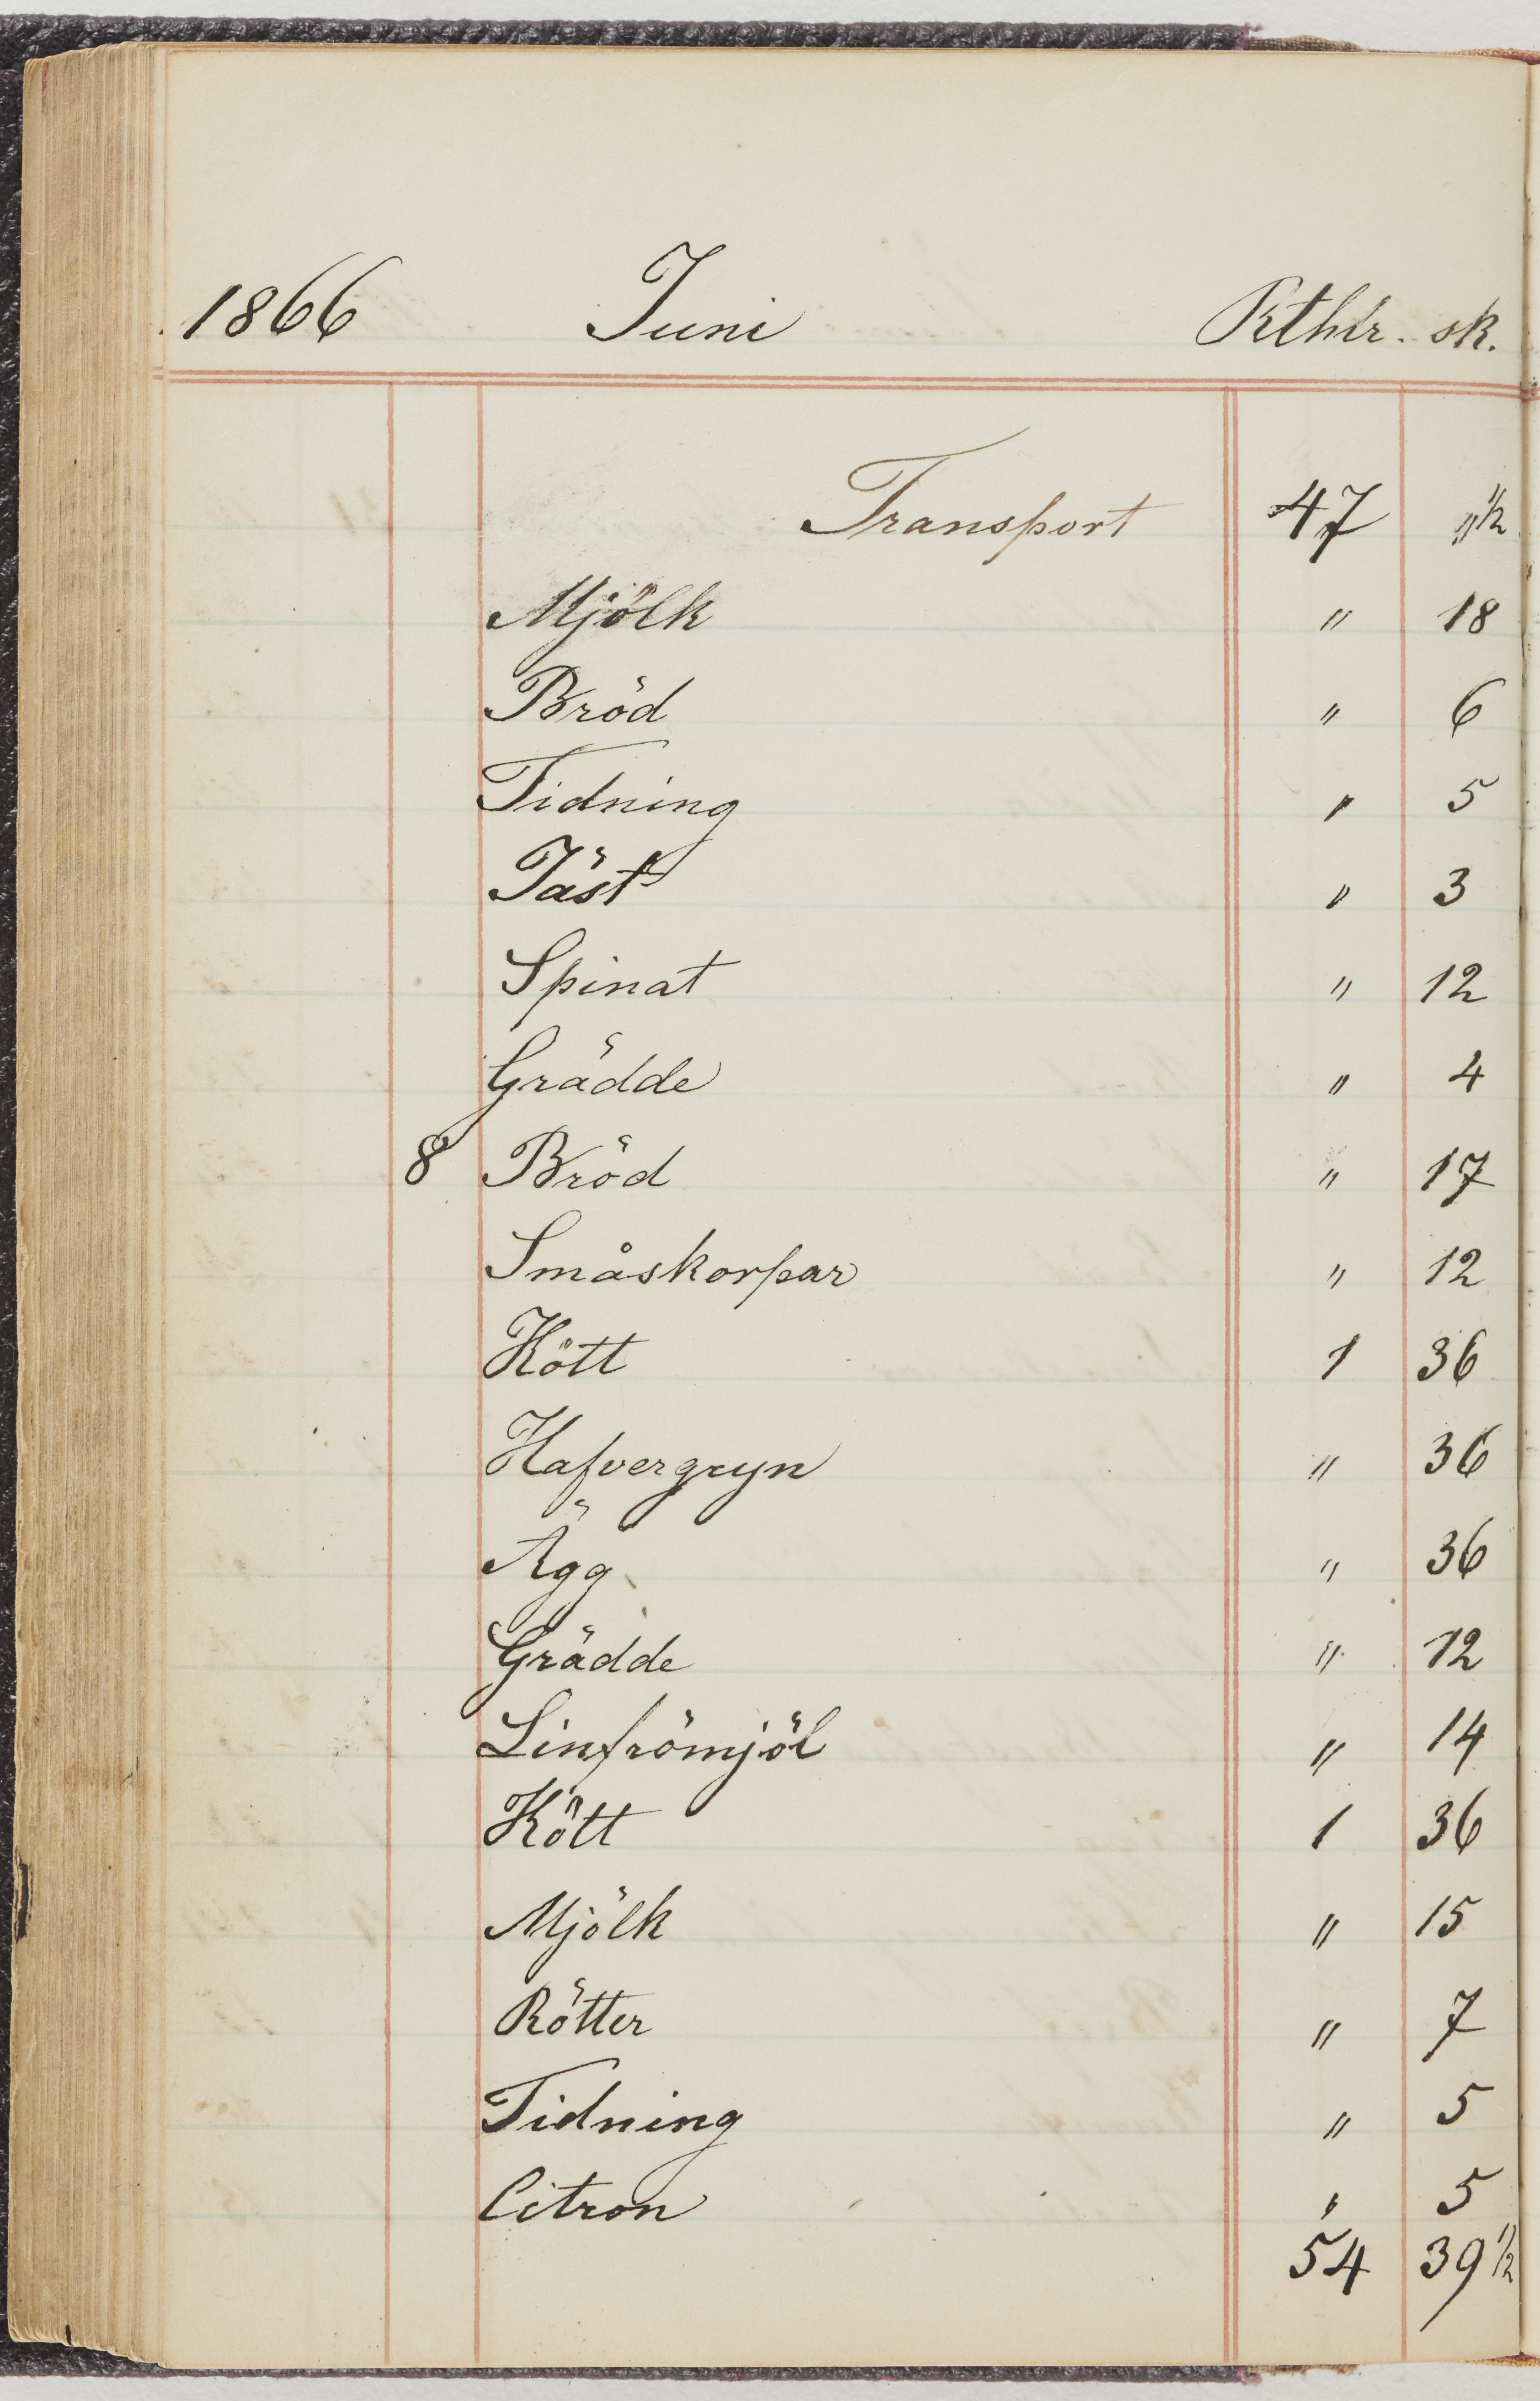 1866 Juni Rthlr. sk.
Transport 47 "1/2
Mjölk " 18
Bröd " 6
Tidning " 5
Jäst " 3
Spinat " 12
Grädde " 4
8 Bröd " 17
Småskorpar " 12
Kött 1 36
Hafvergryn " 36
Ägg " 36
Grädde " 12
Linfrömjöl " 14
Kött 1 36
Mjölk " 15
Rötter " 7
Tidning " 5
Citron " 5
54 39 1/2